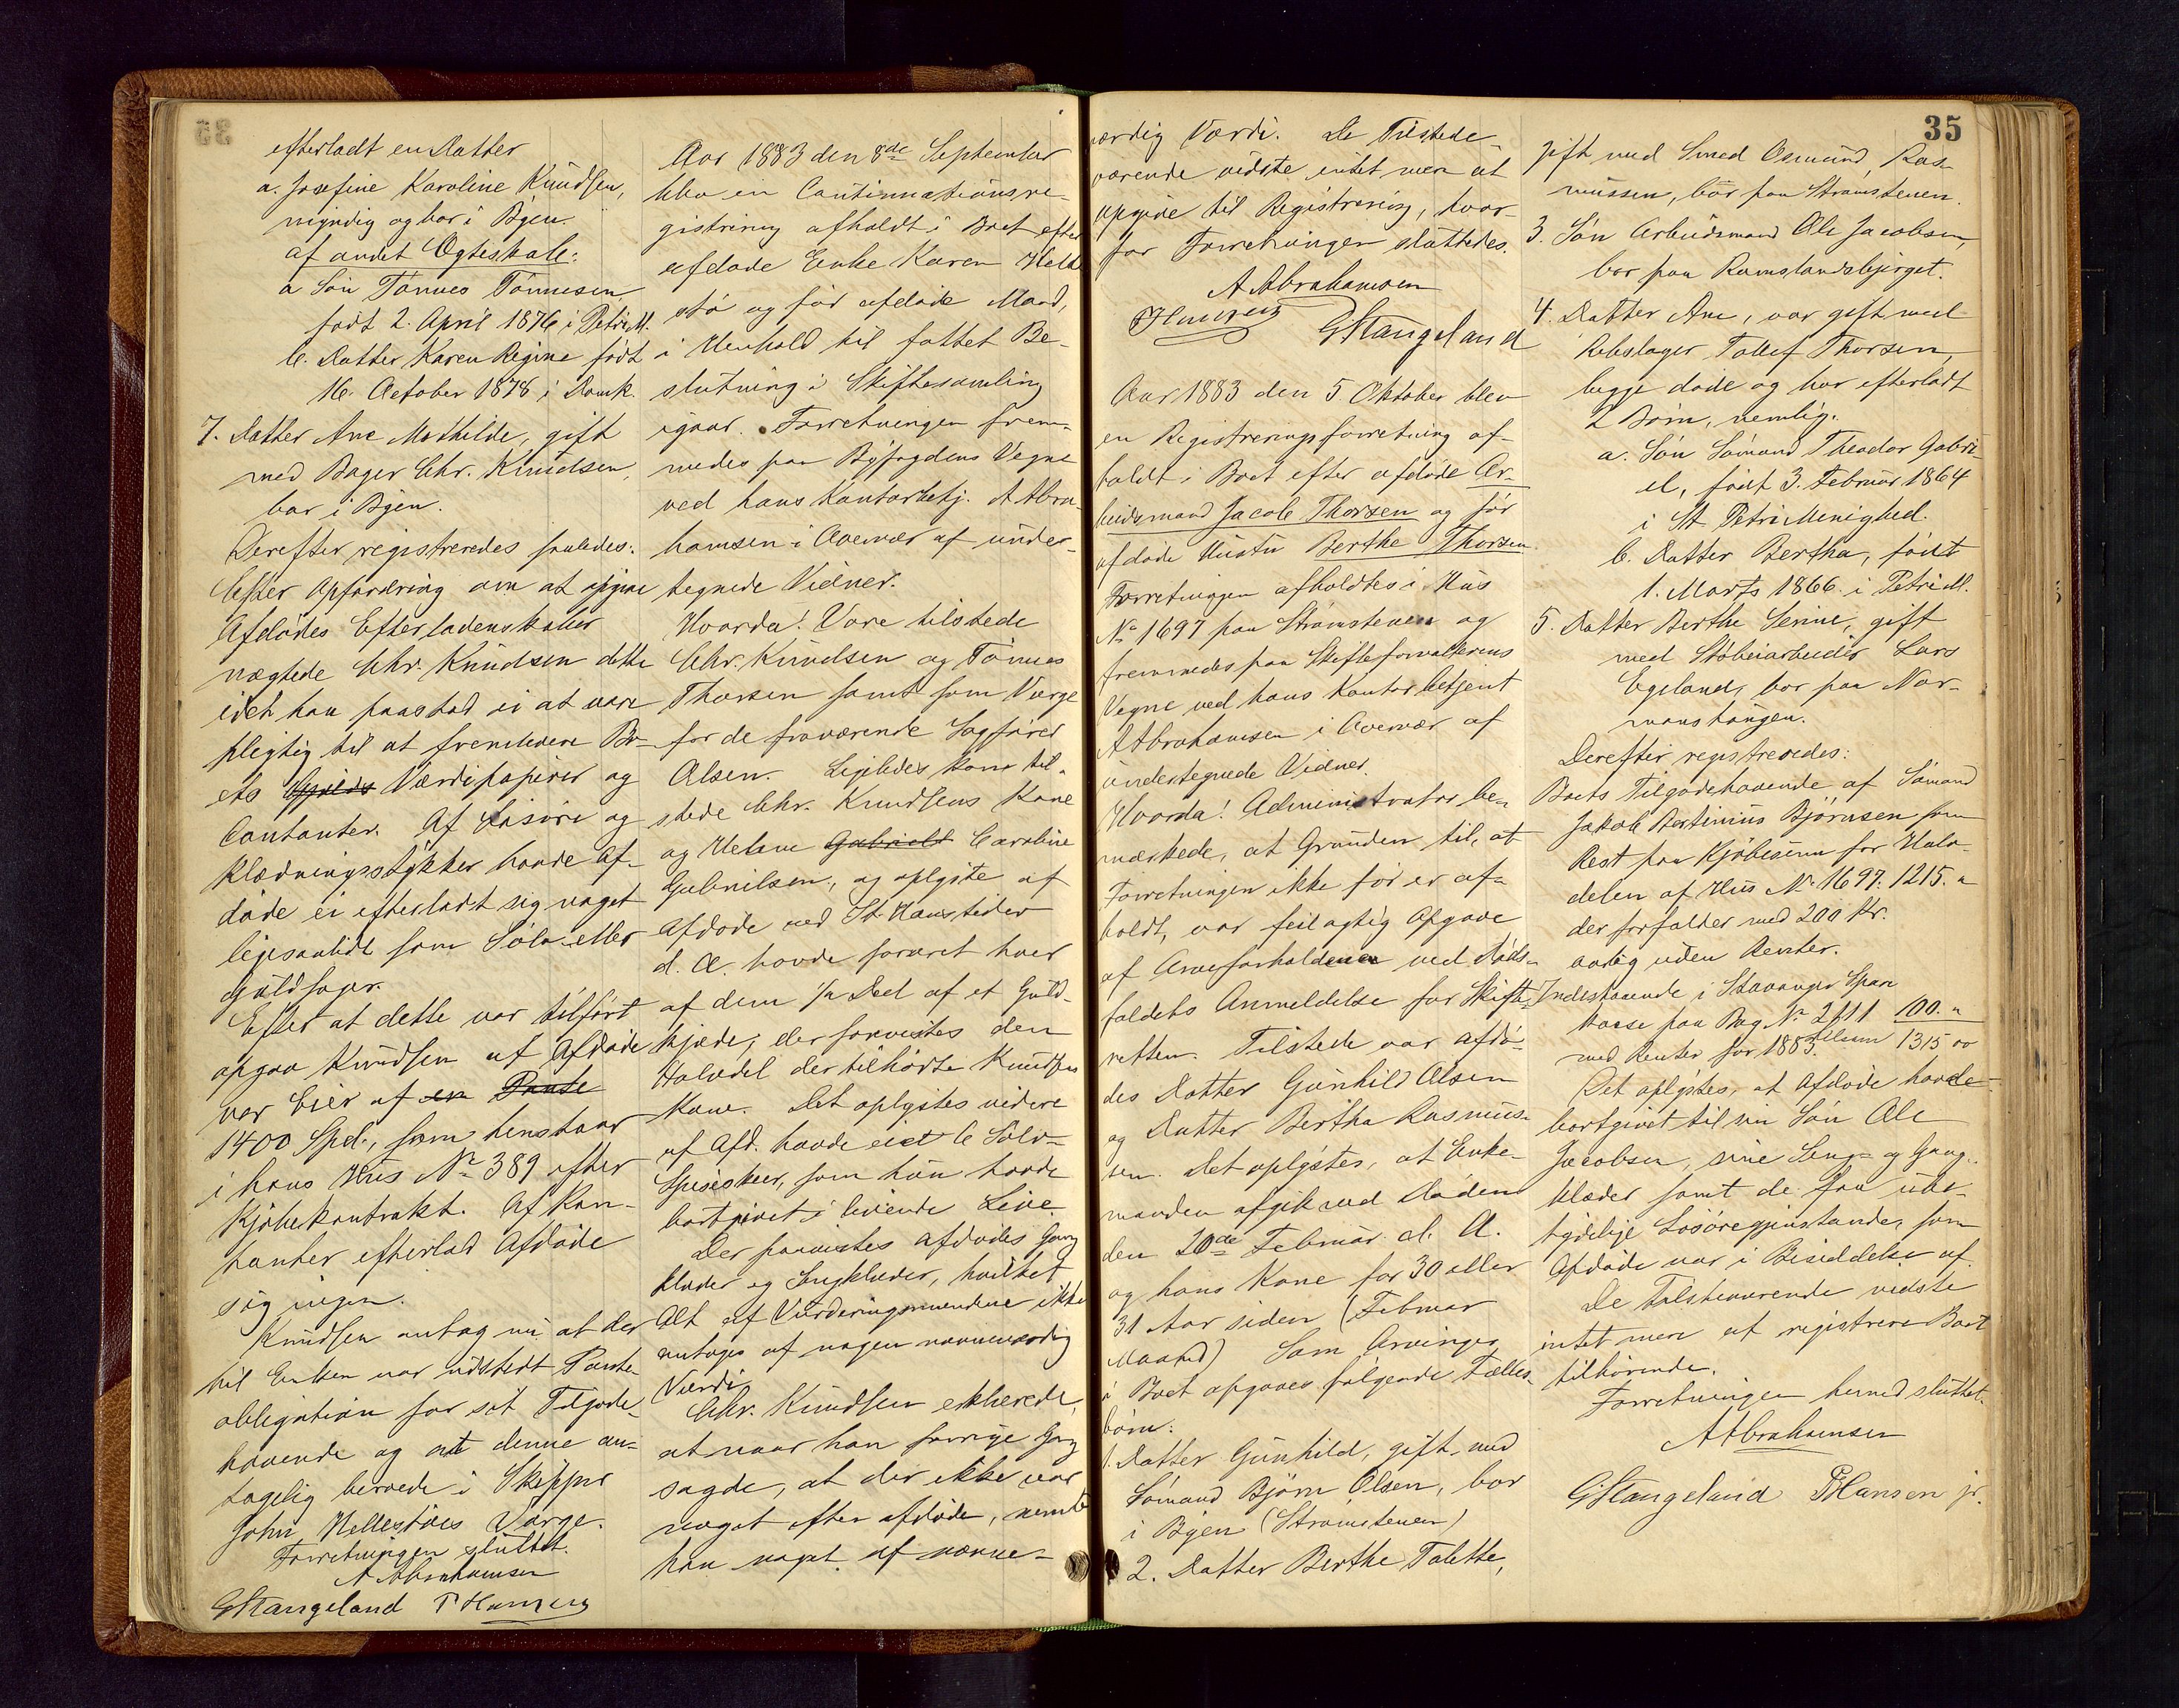 efterladt en Datter
a. Josefine Karoline Knudsen,
myndig og bor i Byen.
af andet Ægteskab:
a Søn Tønnes Tønnesen
født 2. April 1876 i Petri M.
b. Datter Karen Regine født
16. October 1878 i Domk.
7. Datter Ane Mathilde, gift
med Bager Chr. Knudsen,
bor i Byen.
Derefter registreredes saaledes:
Efter Opfordring om at opgive
Afdødes Efterladenskaber
nægtede Chr. Knudsen dette
idet han paastod ei at være
pligtig til at fremlevere Bo-
ets Værdipapirer og
Contanter. Af Løsøre og
Klædningsstykker havde Af-
døde ei efterladt sig noget
ligesaalidt som Sølv- eller
Guldsager.
Efter at dette var tilført
opgav Knudsen at Afdøde
var Eier af en Pante
1400 Spd., som henstaar
i hans Hus No 389 efter
Kjøbekontrakt. Af Kon-
tanter efterlod Afdøde
sig ingen.
Knudsen antog nu at der
til Enken var udstedt Pante-
obligation for sit Tilgode-
havende og at denne an-
tagelig beroede i Skipper
John Hellestøes Værge.
Forretningen sluttet.
A Abrahamsen
G Stangeland P Hansen
Aar 1883 den 8de September
blev en Continuationsre-
gistrering afholdt i Boet efter
afdøde Enke Karen Helle
stø og før afdøde Mand,
i Henhold til fattet Be-
slutning i Skiftesamling
igaar. Forretningen frem-
medes paa Byfogdens Vegne
ved hans Kontorbetj. A Abra-
hamsen i Overvær af under-
tegnede Vidner.
Hvorda! Vare tilstede
Chr. Knudsen og Tønnes
Thorsen samt som Værge
for de fraværende Sagfører
Olsen. Ligeledes kom til-
stede Chr. Knudsens Kone
og Helene Gabriels Caroline
Gabrielsen, og oplyste at
Afdøde ved St. Hanstider
d. A. havde foræret hver
af dem 1/2 Deel af et Guld-
kjæde; der forevistes den
Halvdel der tilhørte Knudsens
Kone. Det oplystes videre
at Afd. havde eiet 6 Sølv-
Spiseskeer, som hun havde
bortgivet i levende Live.
Der forevistes afdødes Gang
klæder og Sengklæder, hvilket
Alt af Vurderingsmændene ikke
antoges af nogen nævneværdig
Værdi.
Chr. Knudsen erklærede,
at naar han forrige Gang
sagde, at der ikke var
noget efter afdøde, mente
han noget af nævne-
35
værdig Værdi. De Tilstede-
værende vidste intet mere at
opgive til Registrering, hvor-
for Forretningen sluttedes.
A Abrahamsen
P Hansen
G Stangeland
Aar 1883 den 5 Oktober blev
en Registreringsforretning af-
holdt i Boet efter afdøde Ar-
beidsmand Jacob Thorsen og før
afdøde Hustru Berthe Thorsen.
Forretningen afholdtes i Hus
No 1697 paa Strømstenen og
fremmedes paa Skifteforvalterens
Vegne ved hans Kontorbetjent
A Abrahamsen i Overvær af
undertegnede Vidner.
Hvorda! Administrator be-
mærkede, at Grunden til, at
Forretningen ikke før er af-
holdt, var feilagtig Opgave
af Arveforholdene ved Døds-
faldets Anmeldelse for Skifte-
retten. Tilstede var afdø-
des Datter Gunhild Olsen
og Datter Bertha Rasmus-
sen. Det oplystes, at Enke-
manden afgik ved Døden
den 20de Februar d. A.
og hans Kone for 30 eller
31 Aar siden (Februar
Maaned) Som Arvinger
i Boet opgaves følgende Fælles-
børn:
1. Datter Gunhild, gift med
Sømand Bjørn Olsen, bor
i Byen (Strømstenen)
2. Datter Berthe Tolette,
gift med Smed Osmund Ras-
mussen, bor paa Strømstenen.
3. Søn Arbeidsmand Ole Jacobsen,
bor paa Ramslandsbjerget.
4. Datter Ane, var gift med
Rebslager Tollef Thorsen,
begge døde og har efterladt
2 Børn, nemlig.
a. Søn Sømand Theodor Gabri-
el, født 3. Februar 1864
i St. Petri Menighed.
b. Datter Bertha, født
1. Marts 1866 i Petri M.
5. Datter Berthe Serine, gift
med Støberiarbeider Lars
Egeland, bor paa Nor-
manstangen.
Derefter registreredes:
Boets Tilgodehavende af Sømand
Jakob Bertinius Bjørnsen som
Rest paa Kjøbesum for Halv-
delen af Hus No 1697. 1215. "
der forfalder med 200 Kr.
aarlig uden Renter.
Indestaaende i Stavanger Spare
kasse paa Bog No 2111 100. "
med Renter for 1883. tilsam 1315 00
Det oplystes, at Afdøde havde
bortgivet til sin Søn Ole
Jacobsen, sine Seng- og Gang-
klæder samt de faa ube-
tydelige Løsøregjenstande, som
Afdøde var i Besiddelse af.
De Tilstedeværende vidste
intet mere at registrere Boet
tilhørende.
Forretningen hermed sluttet.
A Abrahamsen
G Stangeland P Hansen jr.